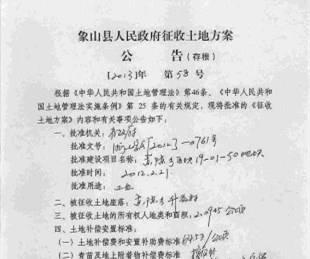 象山县人民政府征收土地方案
公 告（存根）
[2013]年 第58号
根据《中华人民共和国土地管理法》第46条、《中华人民共和
国土地管理法实施条例》第 25 条的有关规定，现将批准的《征收
土地方案》内容和有关事项公告如下：
一、批准机关：省政府
批准文号： [2012]-0761号
批准建设项目名称： 19-01-50地块
批准时间： 2012.2.21.
批准用途：工业
二、被征收土地座落：
三、被征收土地的所有权人地类和面积：2.0945公顷
四、土地补偿安置标准
（一）土地补偿费和安置补助费标准
（二）青苗及地上附着物补偿费标准